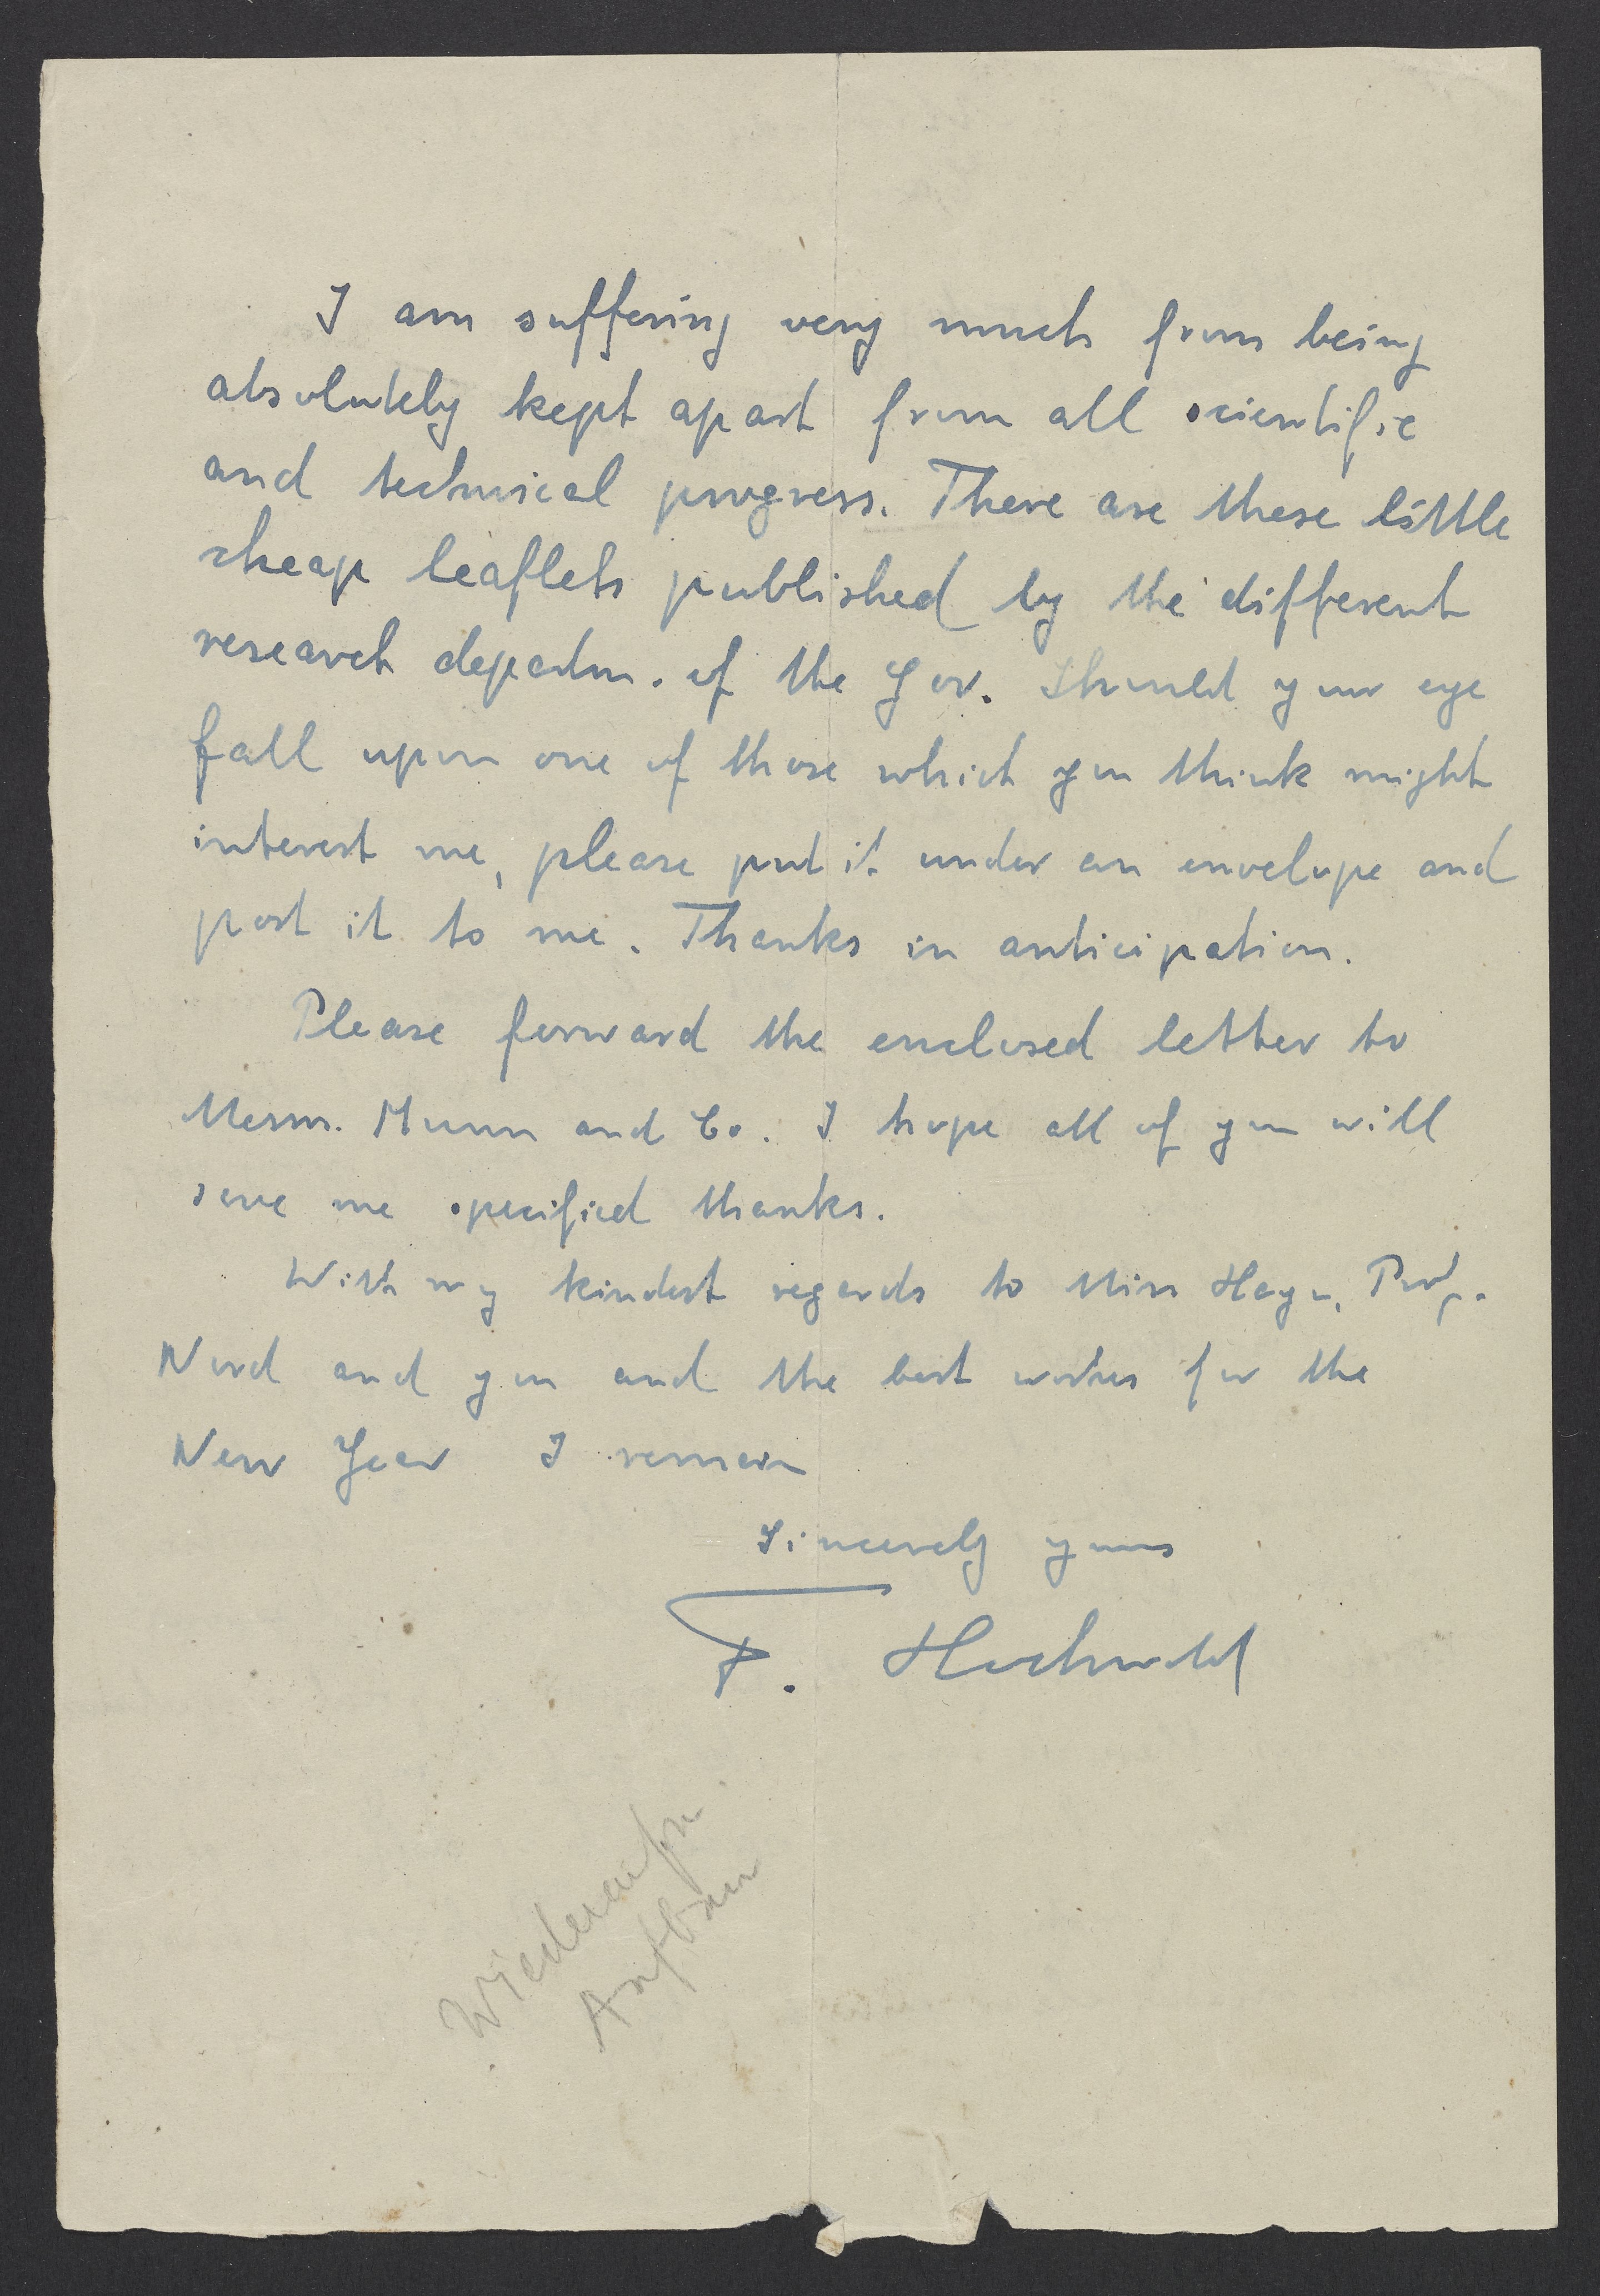 I am suffering very much from being
absolutely kept apart from all scientific
and technical progress. There are these little
cheap leaflets published by the different
research departm. of the Gov. Should your eye
fall upon one of those which you think might
interest me, please put it under an envelope and
post it to me. Thanks in anticipation.
Please forward the enclosed letter to
Messrs. Munn and Co. I hope all of you will
save me specified thanks.
With my kindest regards to Miss Hayn, Prof.
Nord and you and the best wishes for the
New Year I remain
Sincerely yours
F. Hochwald
Aufbau